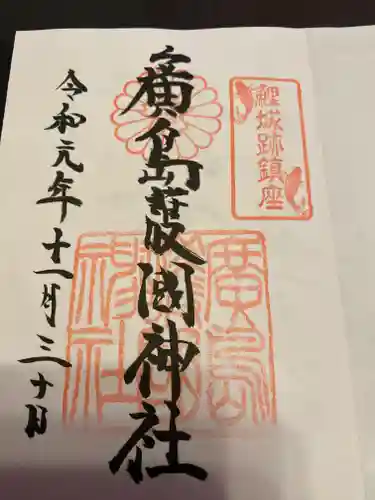 鯉城跡鎮座
廣島護國神社
令和元年十一月三十日
廣島
護國
神社